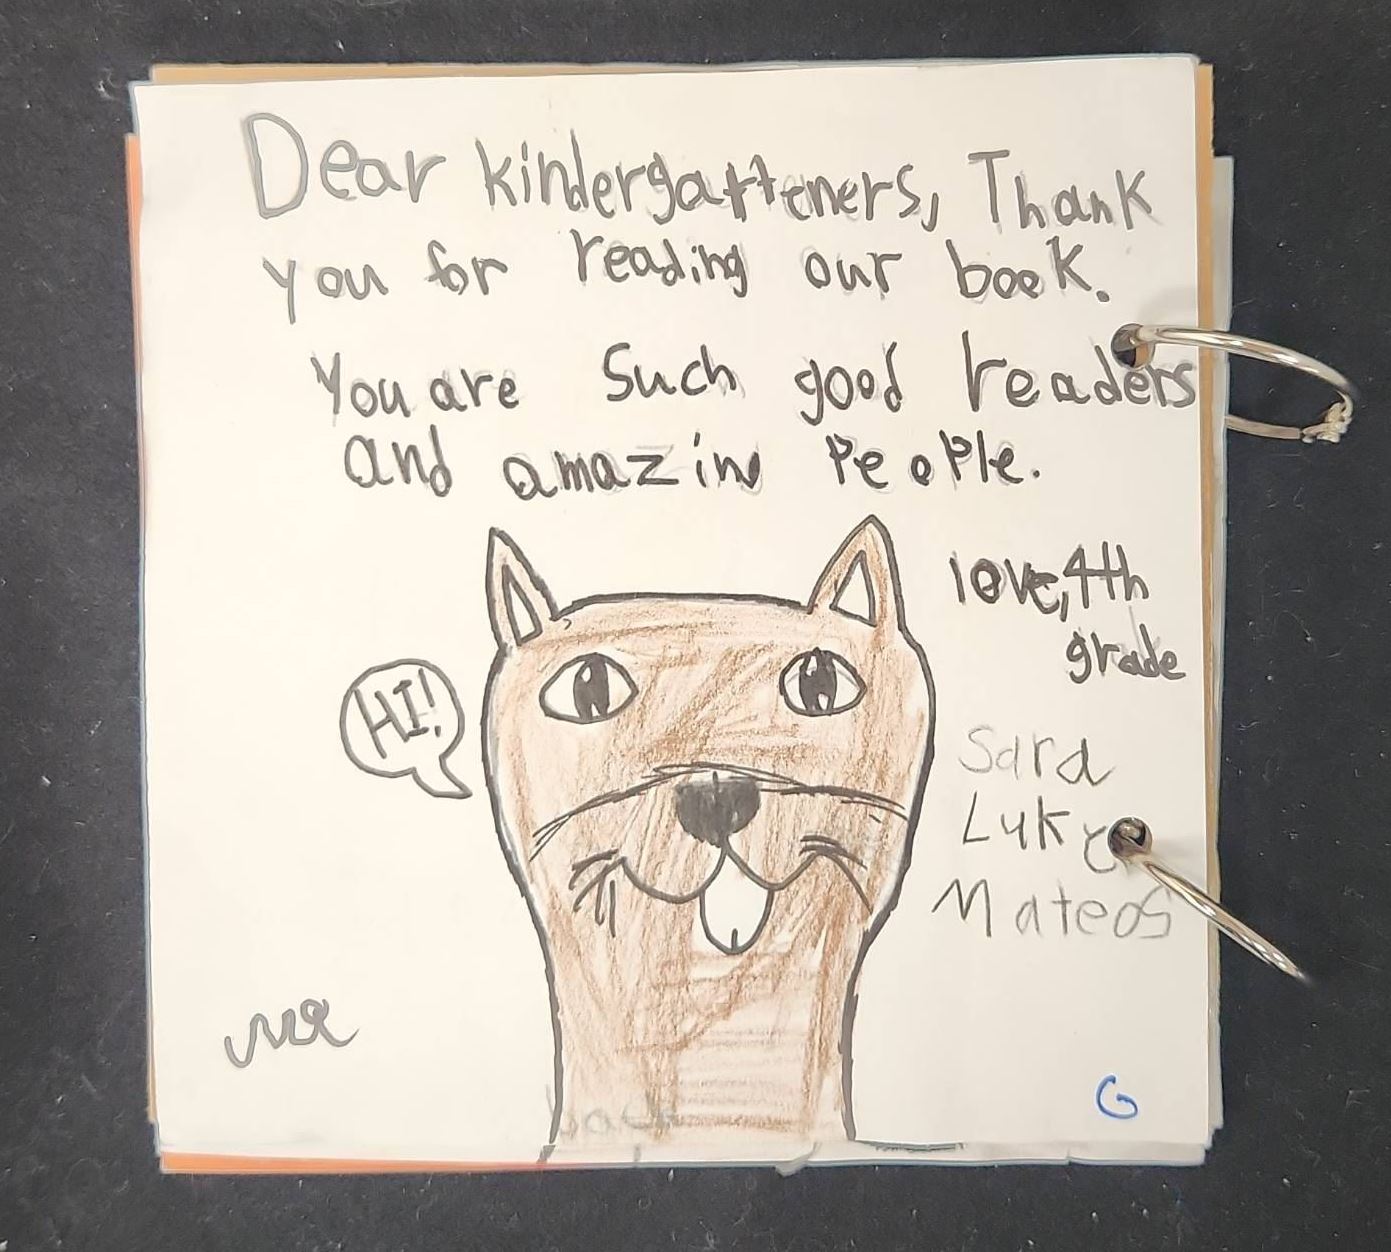 Dear kindergarteners, Thank
you for reading our book.
You are Such good readers
and amazin People.
love, 4th
grade
HI!
Sara
Luke
Mateos
G